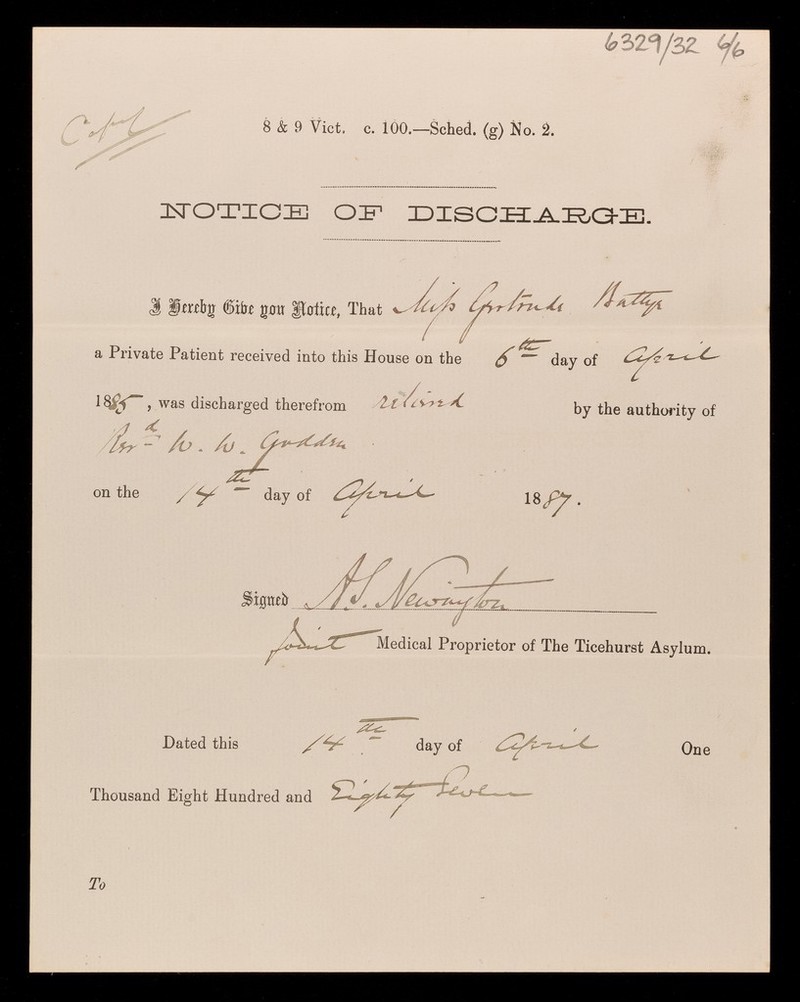 6329/32 6/6
Copy
8 & 9 Vict. c. 100.—Sched. (g) No. 2.
NOTICE OF DISCHARGE.
I Hereby Give you Notice, That Miss Gertrude Battye
a Private Patient received into this House on the 6th day of April
1885, was discharged therefrom relieved by the authority of
Revd W. W. Godden
on the 14th day of April 1887.
Signed H. S. Newington
Joint Medical Proprietor of The Ticehurst Asylum.
Dated this 14th day of April One
Thousand Eight Hundred and Eighty Seven
To